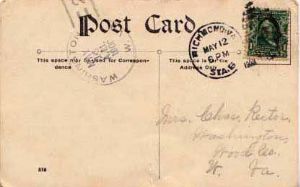 Post Card
WASHINGTON
W. VA.
RICHMOND, VA.
MAY 12
6 PM
STA. B
This space may be used for Correspondence
This space is for the Address Only
Mrs. Chas. Rector,
Washington,
Wood Co.
W. Va.